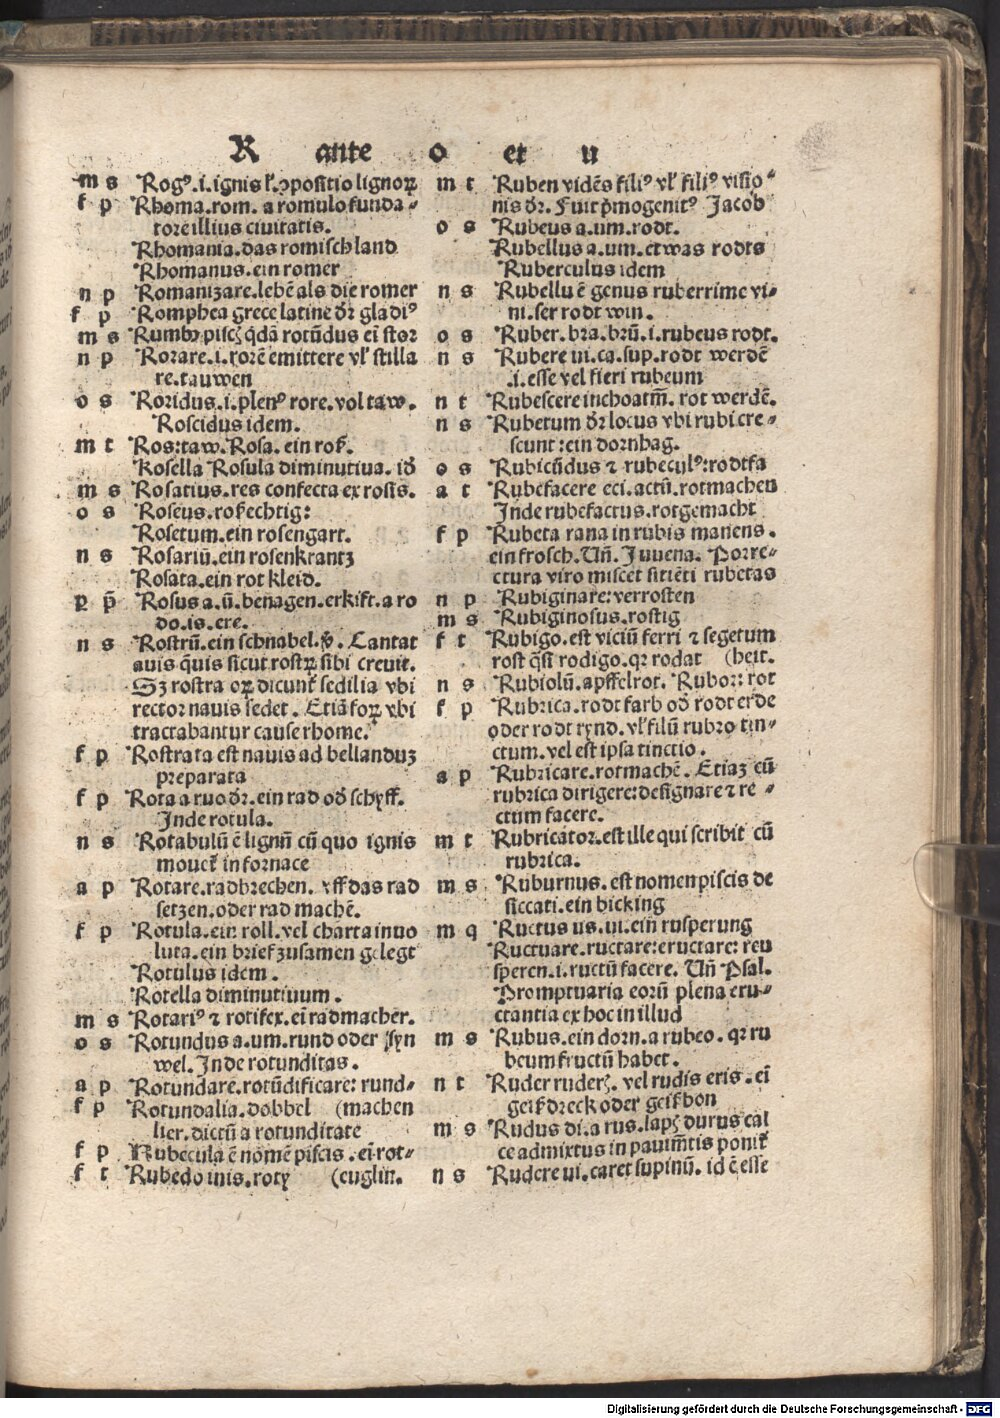 R ante o et u
m s Rogꝰ.i.ignis ł ꝯpositio lignoꝝ
f p Rhoma.rom. a romulo funda-
tore illius ciuitatis.
Rhomania.das romisch land
Rhomanus.ein romer
n p Romanizare.lebē als die romer
f p Romphea grece latine dr̄ gladiꝰ
m s Rumbꝰ pisc̄ q̄dā rotūdus ei stor
n p Rorare.i.rorē emittere vl̄ stilla
re.tauwen
o s Roridus.i.plenꝰ rore.vol taw.
Roscidus idem.
m t Ros:taw.Rosa.ein roß.
Rosella Rosula diminutiua. id̄
m s Rosatius.res confecta ex rosis.
o s Roseus.roßechtig:
Rosetum.ein rosengart.
n s Rosariū.ein rosenkrantz
Rosata.ein rot kleid.
p p̄ Rosus a.ū.benagen.erkift.a ro
do.is.ere.
n s Rostrū.ein schnabel.ꝟ. Cantat
auis q̄uis sicut rostꝝ sibi creuit.
Sz rostra oꝝ dicunt̄ sedilia vbi
rector nauis sedet. Etiā foꝝ vbi
tractabantur cause rhome.
f p Rostrata est nauis ad bellanduz
preparata
f p Rota a ruo dr̄.ein rad od̄ schyff.
Inde rotula.
n s Rotabulū ē lignū cū quo ignis
mouet̄ in fornace
a p Rotare.radbrechen. vff das rad
setzen.oder rad machē.
f p Rotula.ein roll.vel charta inuo
luta.ein brief zusamen gelegt
Rotulus idem.
Rotella diminutiuum.
m s Rotariꝰ ⁊ rotifex.ei radmacher.
o s Rotundus a.um.rund oder syn
wel.Inde rotunditas.
a p Rotundare.rotūdificare: rund-
f p Rotundalia.dobbel (machen
lier.dictū a rotunditate
f p Rubecula ē nomē piscis.ei rot-
f t Rubedo inis.roty (euglin.
m t Ruben vidēs filiꝰ vl̄ filiꝰ visio-
nis dr̄. Fuit p̄mogenitꝰ Jacob
o s Rubeus a.um.rodt.
Rubellus a.um.etwas rodts
Ruberculus idem
n s Rubellū ē genus ruberrime vi-
ni.ser rodt win.
o s Ruber.bra.brū.i.rubeus rodt.
n s Rubere ui.ca.sup.rodt werdē
.i.esse vel fieri rubeum
n t Rubescere inchoatm̄. rot werdē.
n s Rubetum dr̄ locus vbi rubi cre-
scunt:ein dornhag.
o s Rubicūdus ⁊ rubeculꝰ:rodtfa
a t Rubefacere eci.actū.rotmachen
Inde rubefactus.rotgemacht
f p Rubeta rana in rubis manens.
ein frosch. Uñ. Juuena. Porre-
ctura viro miscet sitiēti rubetas
n p Rubiginare:verrosten
m s Rubiginosus.rostig
f t Rubigo.est viciū ferri ⁊ segetum
rost q̄si rodigo.qꝛ rodat (heit.
n s Rubiolū.apffelrot. Rubor: rot
f p Rubrica.rodt farb od̄ rodt erde
oder rodt rynd.vl̄ filū rubro tin-
ctum.vel est ipsa tinctio.
a p Rubricare.rotmachē. Etiaz cū
rubrica dirigere:designare ⁊ re-
ctum facere.
m t Rubricator.est ille qui scribit cū
rubrica.
m s Ruburnus. est nomen piscis de
siccati.ein bicking
m q Ructus us.ui.ein rusperung
Ructuare.ructare:eructare: reu
speren.i.ructū facere. Uñ Psal.
Promptuaria eorū plena eru-
ctantia ex hoc in illud
m s Rubus.ein dorn.a rubeo. qꝛ ru
beum fructū habet.
n t Ruder ruderꝭ. vel rudis eris. ei
geißdreck oder geißbon
m s Rudus di.a rus.lapꝭ durus cal
ce admixtus in pauim̄tis ponit̄
n s Rudere ui.caret supinū. id ē esse
Digitalisierung gefördert durch die Deutsche Forschungsgemeinschaft - DFG